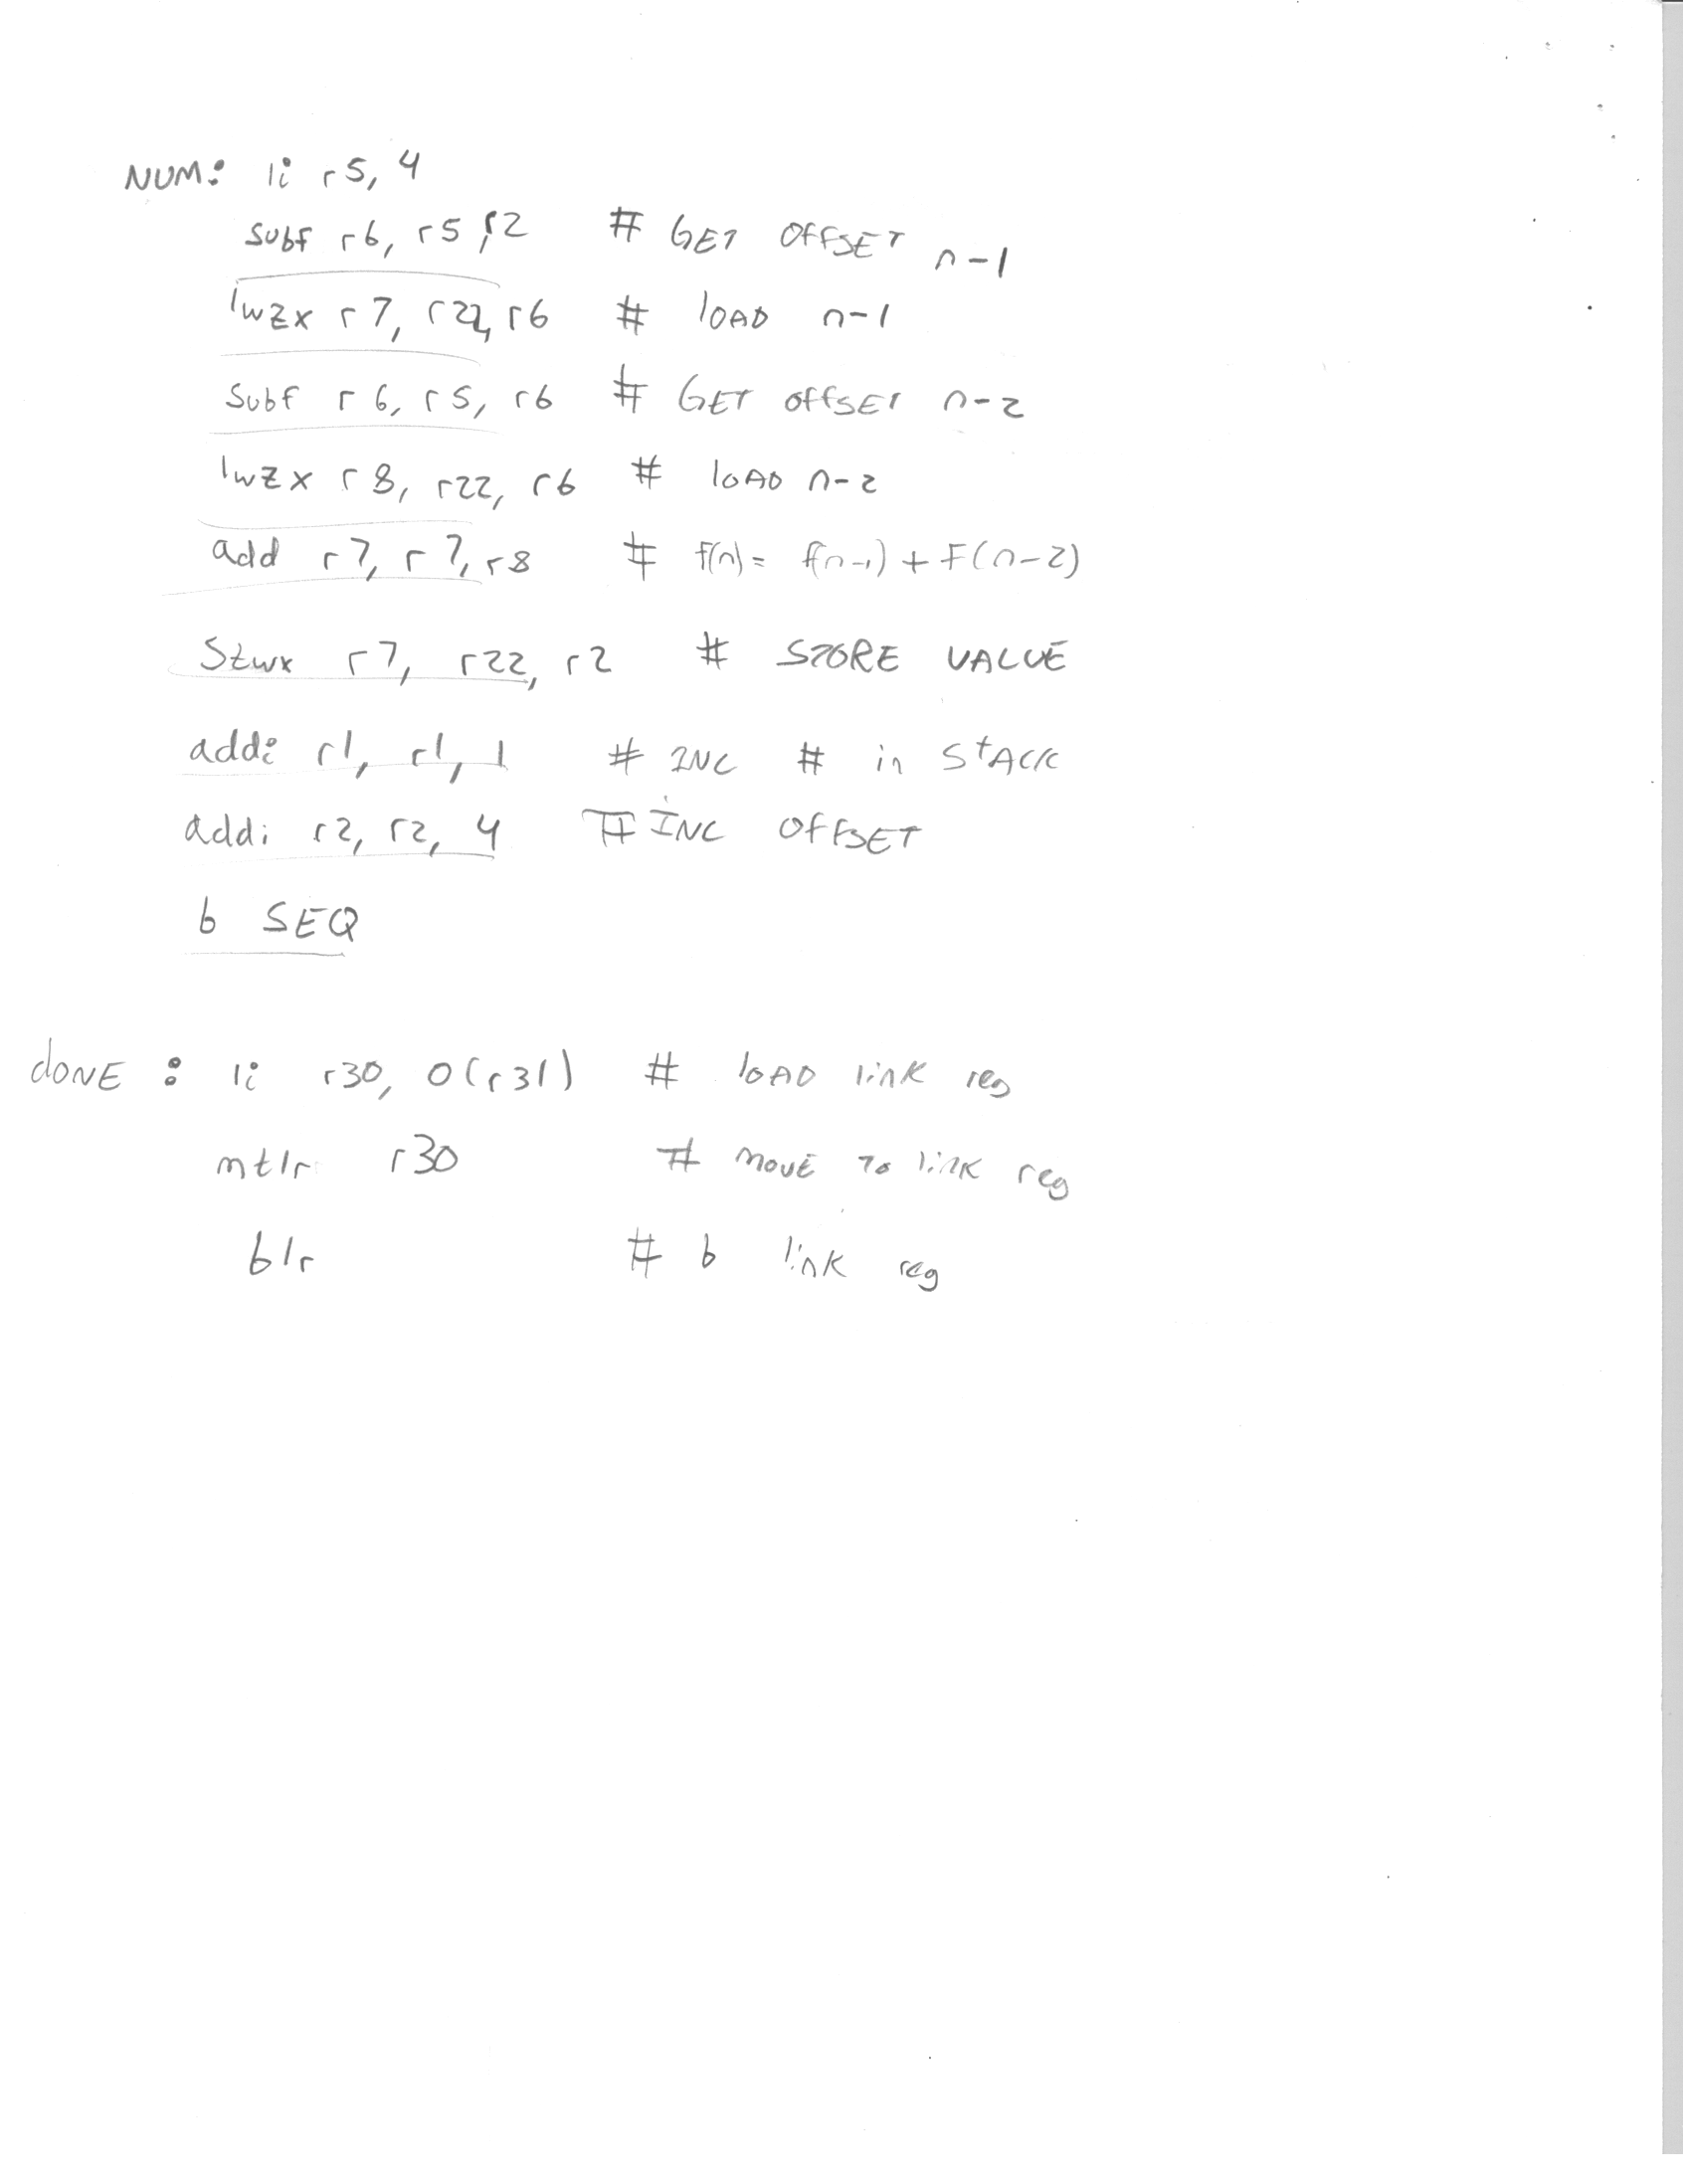 NUM: li r5, 4
subf r6, r5, r2 # GET OFFSET n-1
lwzx r7, r22, r6 # lOAD n-1
subf r6, r5, r6 # GET OffSET n-2
lwzx r8, r22, r6 # lOAD n-2
add r7, r7, r8 # f(n) = f(n-1) + F(n-2)
Stwx r7, r22, r2 # STORE VALUE
addi r1, r1, 1 # INC # in StACK
addi r2, r2, 4 # INC OffSET
b SEQ
dONE : li r30, 0(r31) # lOAD linK reg
mtlr r30 # MOVE TO linK reg
blr # b linK reg